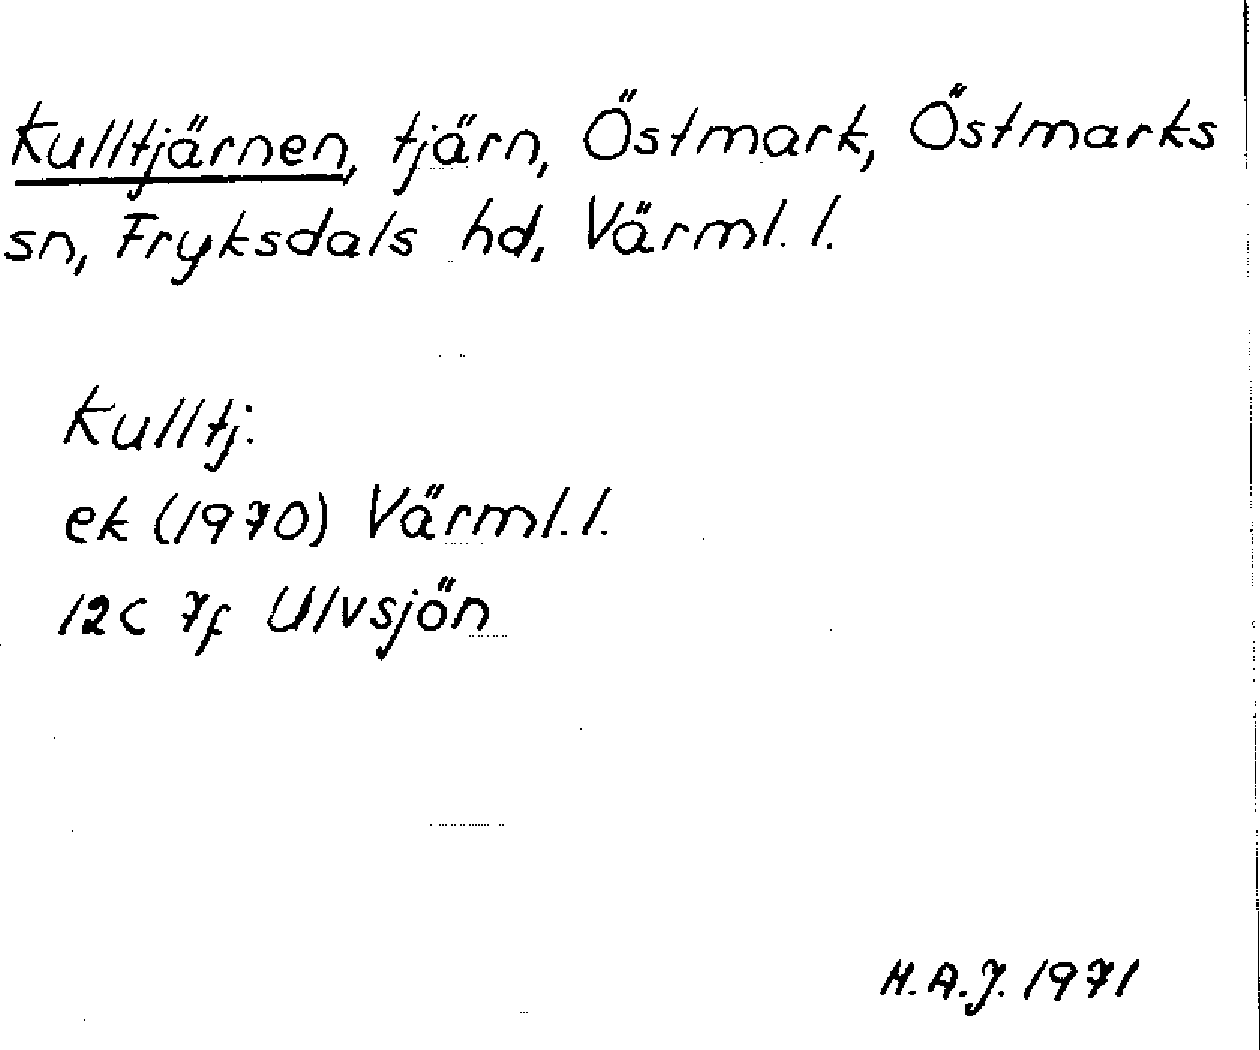 Kulltjärnen, tjärn, Östmark, Östmarks
sn, Fryksdals hd, Värml. l.
Kulltj.
ek (1970) Värml. l.
12C 7f Ulvsjön
H.A.J. 1971